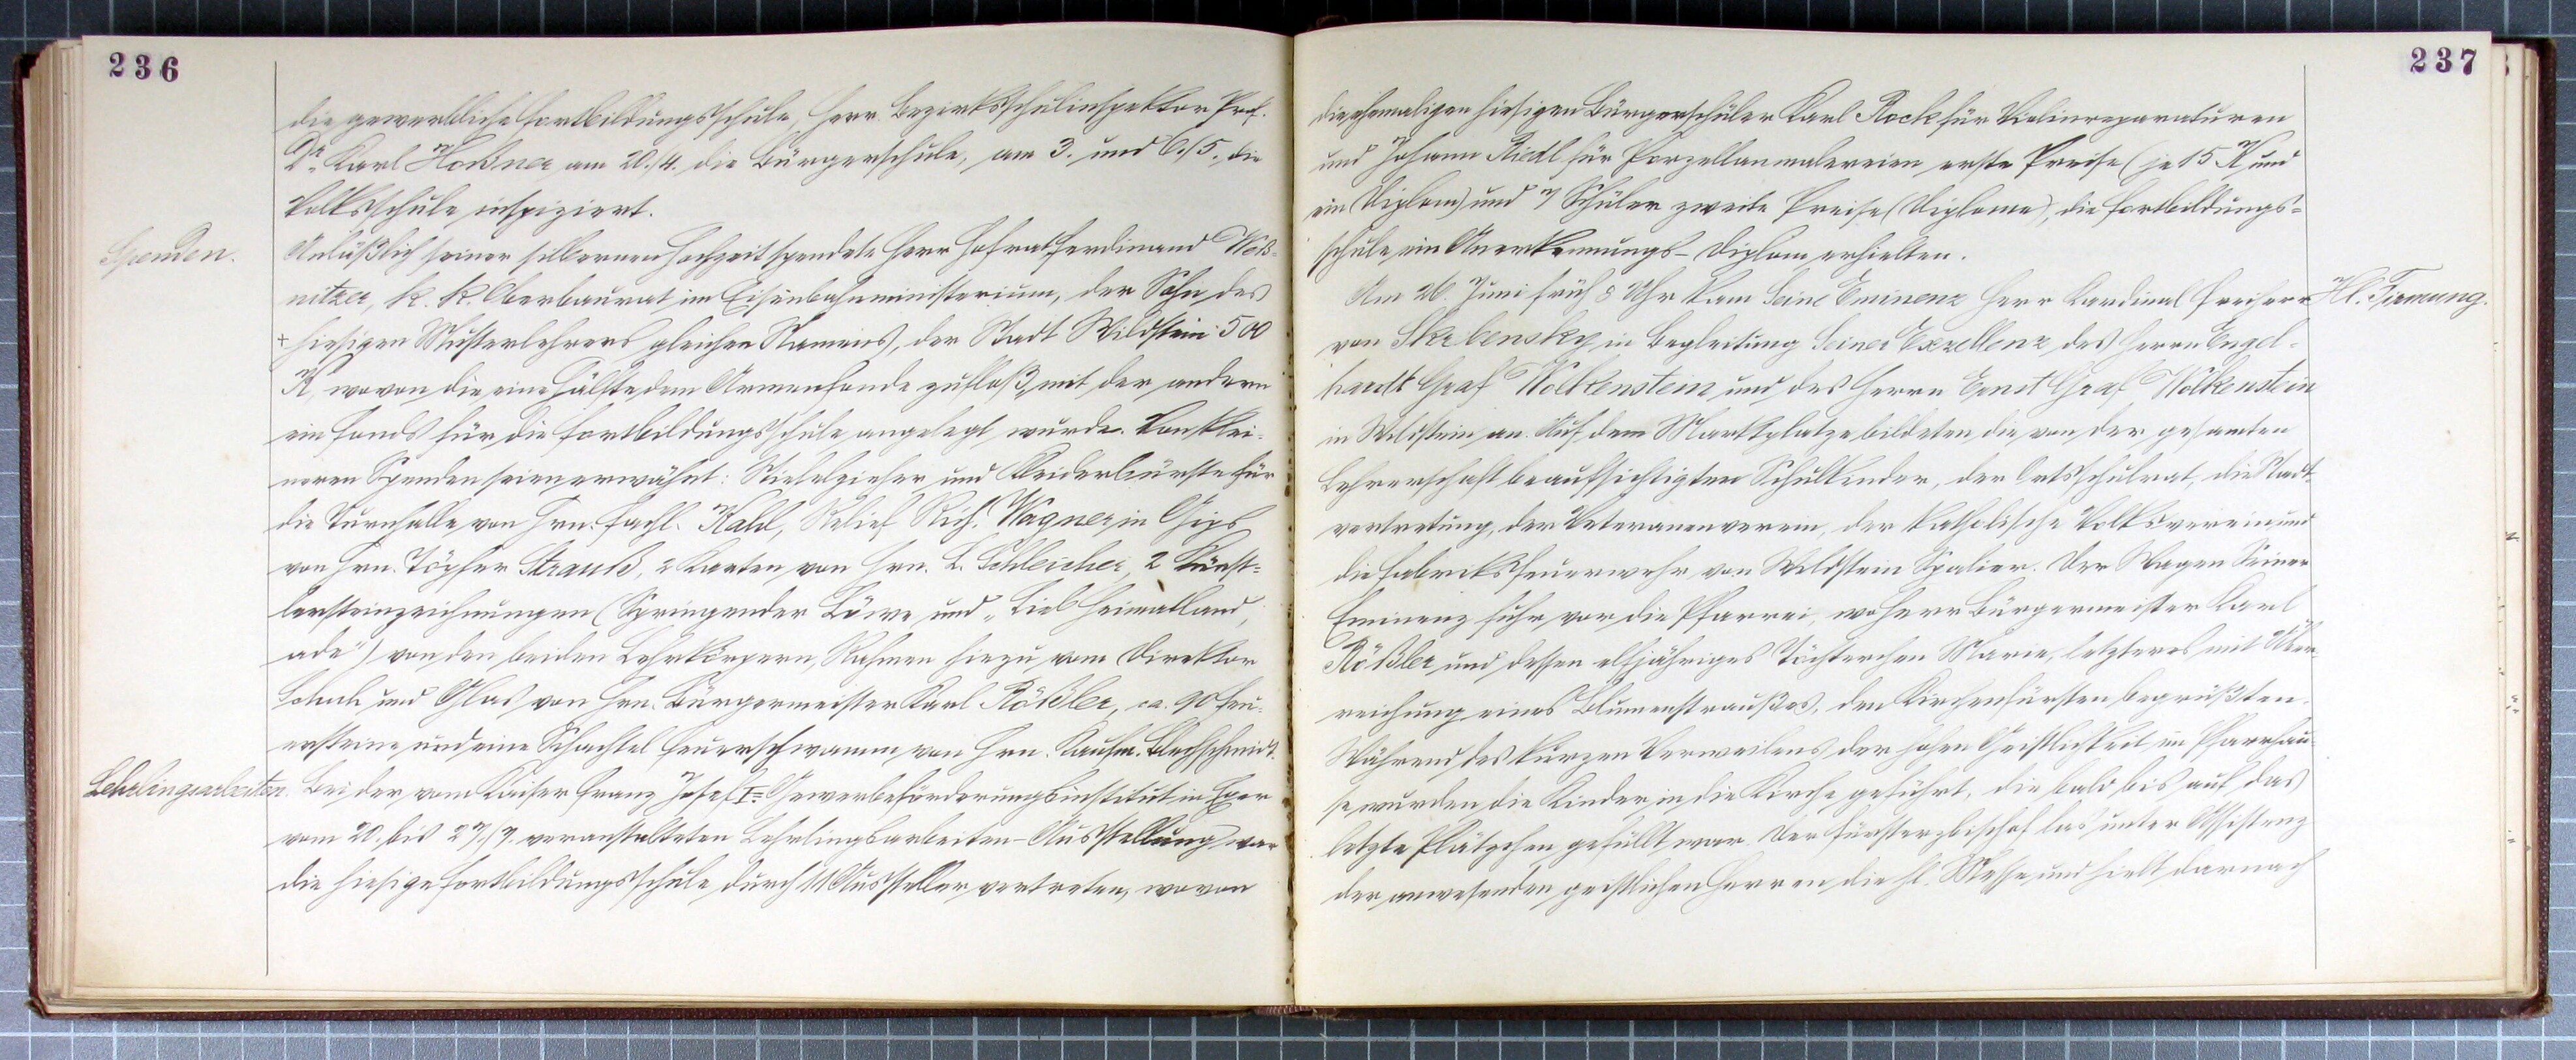 236
die gewerbliche Fortbildungsschule, Herr Bezirksschulinspektor Prof.
Dr. Karl Hoßner am 20./4. die Bürgerschule, am 3. und 6./5. die
Volksschule inspiziert.
Spenden.
Anläßlich seiner silbernen Hochzeit spendete Herr Hofrat Ferdinand Woß-
nitzer, k. k. Oberbaurat im Eisenbahnministerium, der Sohn des
+ hiesigen Musterlehrers gleichen Namens, der Stadt Wildstein 500
K, wovon die eine Hälfte dem Armenfonde zufloß, mit der andern
ein Fonds für die Fortbildungsschule angelegt wurde. Von klei-
neren Spenden seien erwähnt: Stiefelzieher und Kleiderbürste für
die Turnhalle von Hrn. Fachl. Kahl, Relief Rich. Wagner in Gips
von Hrn. Töpfer Strauß, 2 Karten von Hrn. L. Schleicher, 2 Künst-
lersteinzeichnungen (Springender Löwe und „Lieb Heimatland,
ade") von den beiden Lehrkörpern, Rahmen hiezu vom Direktor
Schuh und Glas von Hrn. Bürgermeister Karl Rößler, ca. 90 Feu-
ersteine und eine Schachtel Feuerschwamm von Hrn. Kaufm. Blechschmidt.
Lehrlingsarbeiten.
Bei der vom Kaiser Franz Josef I= Gewerbeförderungsinstitut in Eger
vom 20. bis 27./7. veranstalteten Lehrlingsarbeiten-Ausstellung war
die hiesige Fortbildungsschule durch 11 Aussteller vertreten, wovon
237
die ehemaligen hiesigen Bürgerschüler Karl Rock für Violinreparaturen
und Johann Riedl für Porzellanmalereien erste Preise (je 15 K und
ein Diplom) und 7 Schüler zweite Preise (Diplome), die Fortbildungs-
schule ein Anerkennungs-Diplom erhielten.
Hl. Firmung.
Am 26. Juni früh 8 Uhr kam Seine Eminenz Herr Kardinal Freiherr
von Skrbensky in Begleitung Seiner Exzellenz des Herrn Engel-
hardt Graf Wolkenstein und des Herrn Ernst Graf Wolkenstein
in Wildstein an. Auf dem Marktplatze bildeten die von der gesamten
Lehrerschaft beaufsichtigten Schulkinder, der Ortsschulrat, die Stadt-
vertretung, der Veteranenverein, der katholische Volksverein und
die Fabriksfeuerwehr von Wildstein Spalier. Der Wagen Seiner
Eminenz fuhr vor die Pfarrei, wo Herr Bürgermeister Karl
Rößler und dessen elfjähriges Töchterchen Marie, letzteres mit Über-
reichung eines Blumenstraußes, den Kirchenfürsten begrüßten.
Während des kurzen Verweilens der hohen Geistlichkeit im Pfarrhau-
se wurden die Kinder in die Kirche geführt, die bald bis auf das
letzte Plätzchen gefüllt war. Der Fürsterzbischof las unter Assistenz
der anwesenden geistlichen Herren die hl. Messe und hielt darnach